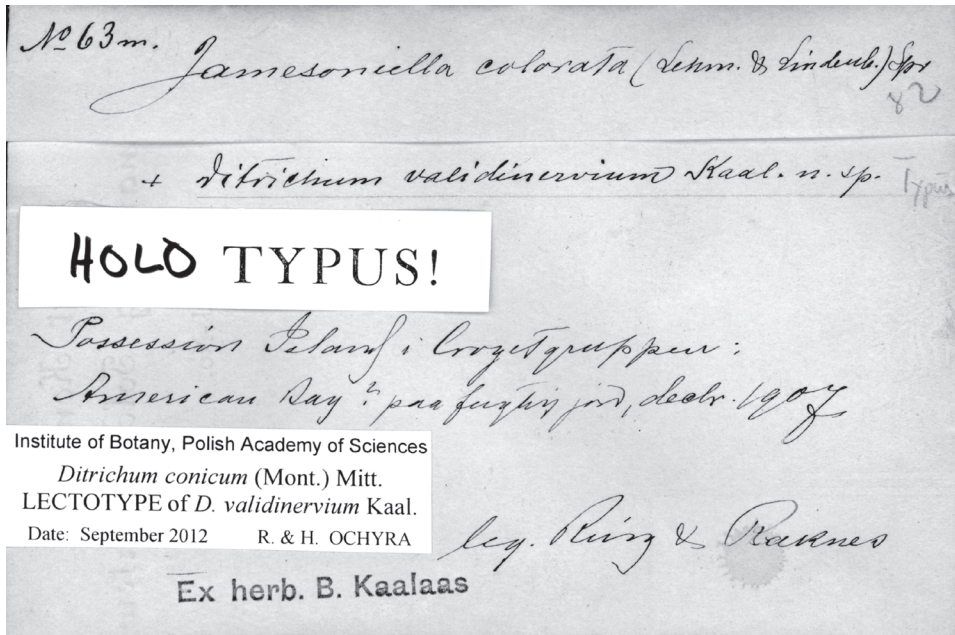 No 63 m.
Jamesoniella colorata (Lehm. & Lindenb.) Spr
82
+ Ditrichum validinervium Kaal. n. sp.
Typus
HOLO TYPUS!
Possession Island i Crozetgruppen:
American Bay: paa fugtig jord, decbr. 1907
Institute of Botany, Polish Academy of Sciences
Ditrichum conicum (Mont.) Mitt.
LECTOTYPE of D. validinervium Kaal.
Date: September 2012 R. & H. OCHYRA
leg. Ring & Raknes
Ex herb. B. Kaalaas